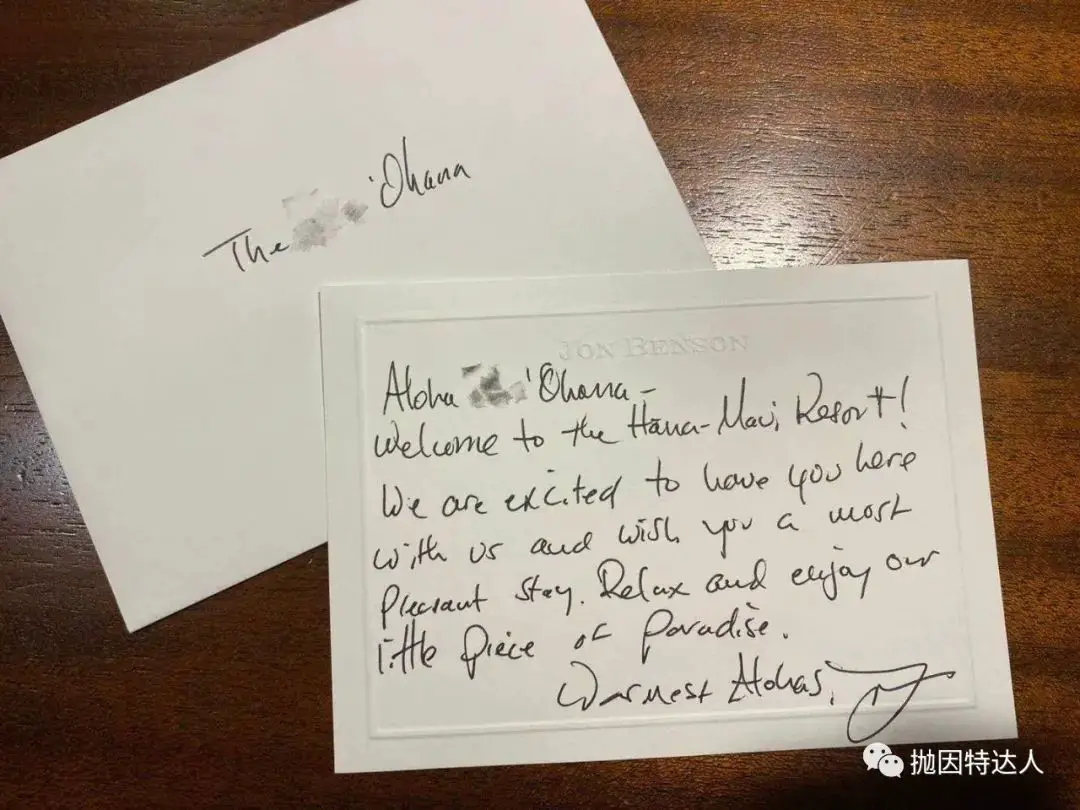 The 'Ohana
JON BENSON
Aloha 'Ohana-
Welcome to the Hāna-Maui Resort!
We are excited to have you here
with us and wish you a most
pleasant stay. Relax and enjoy our
little piece of paradise.
Warmest Alohas,
抛因特达人